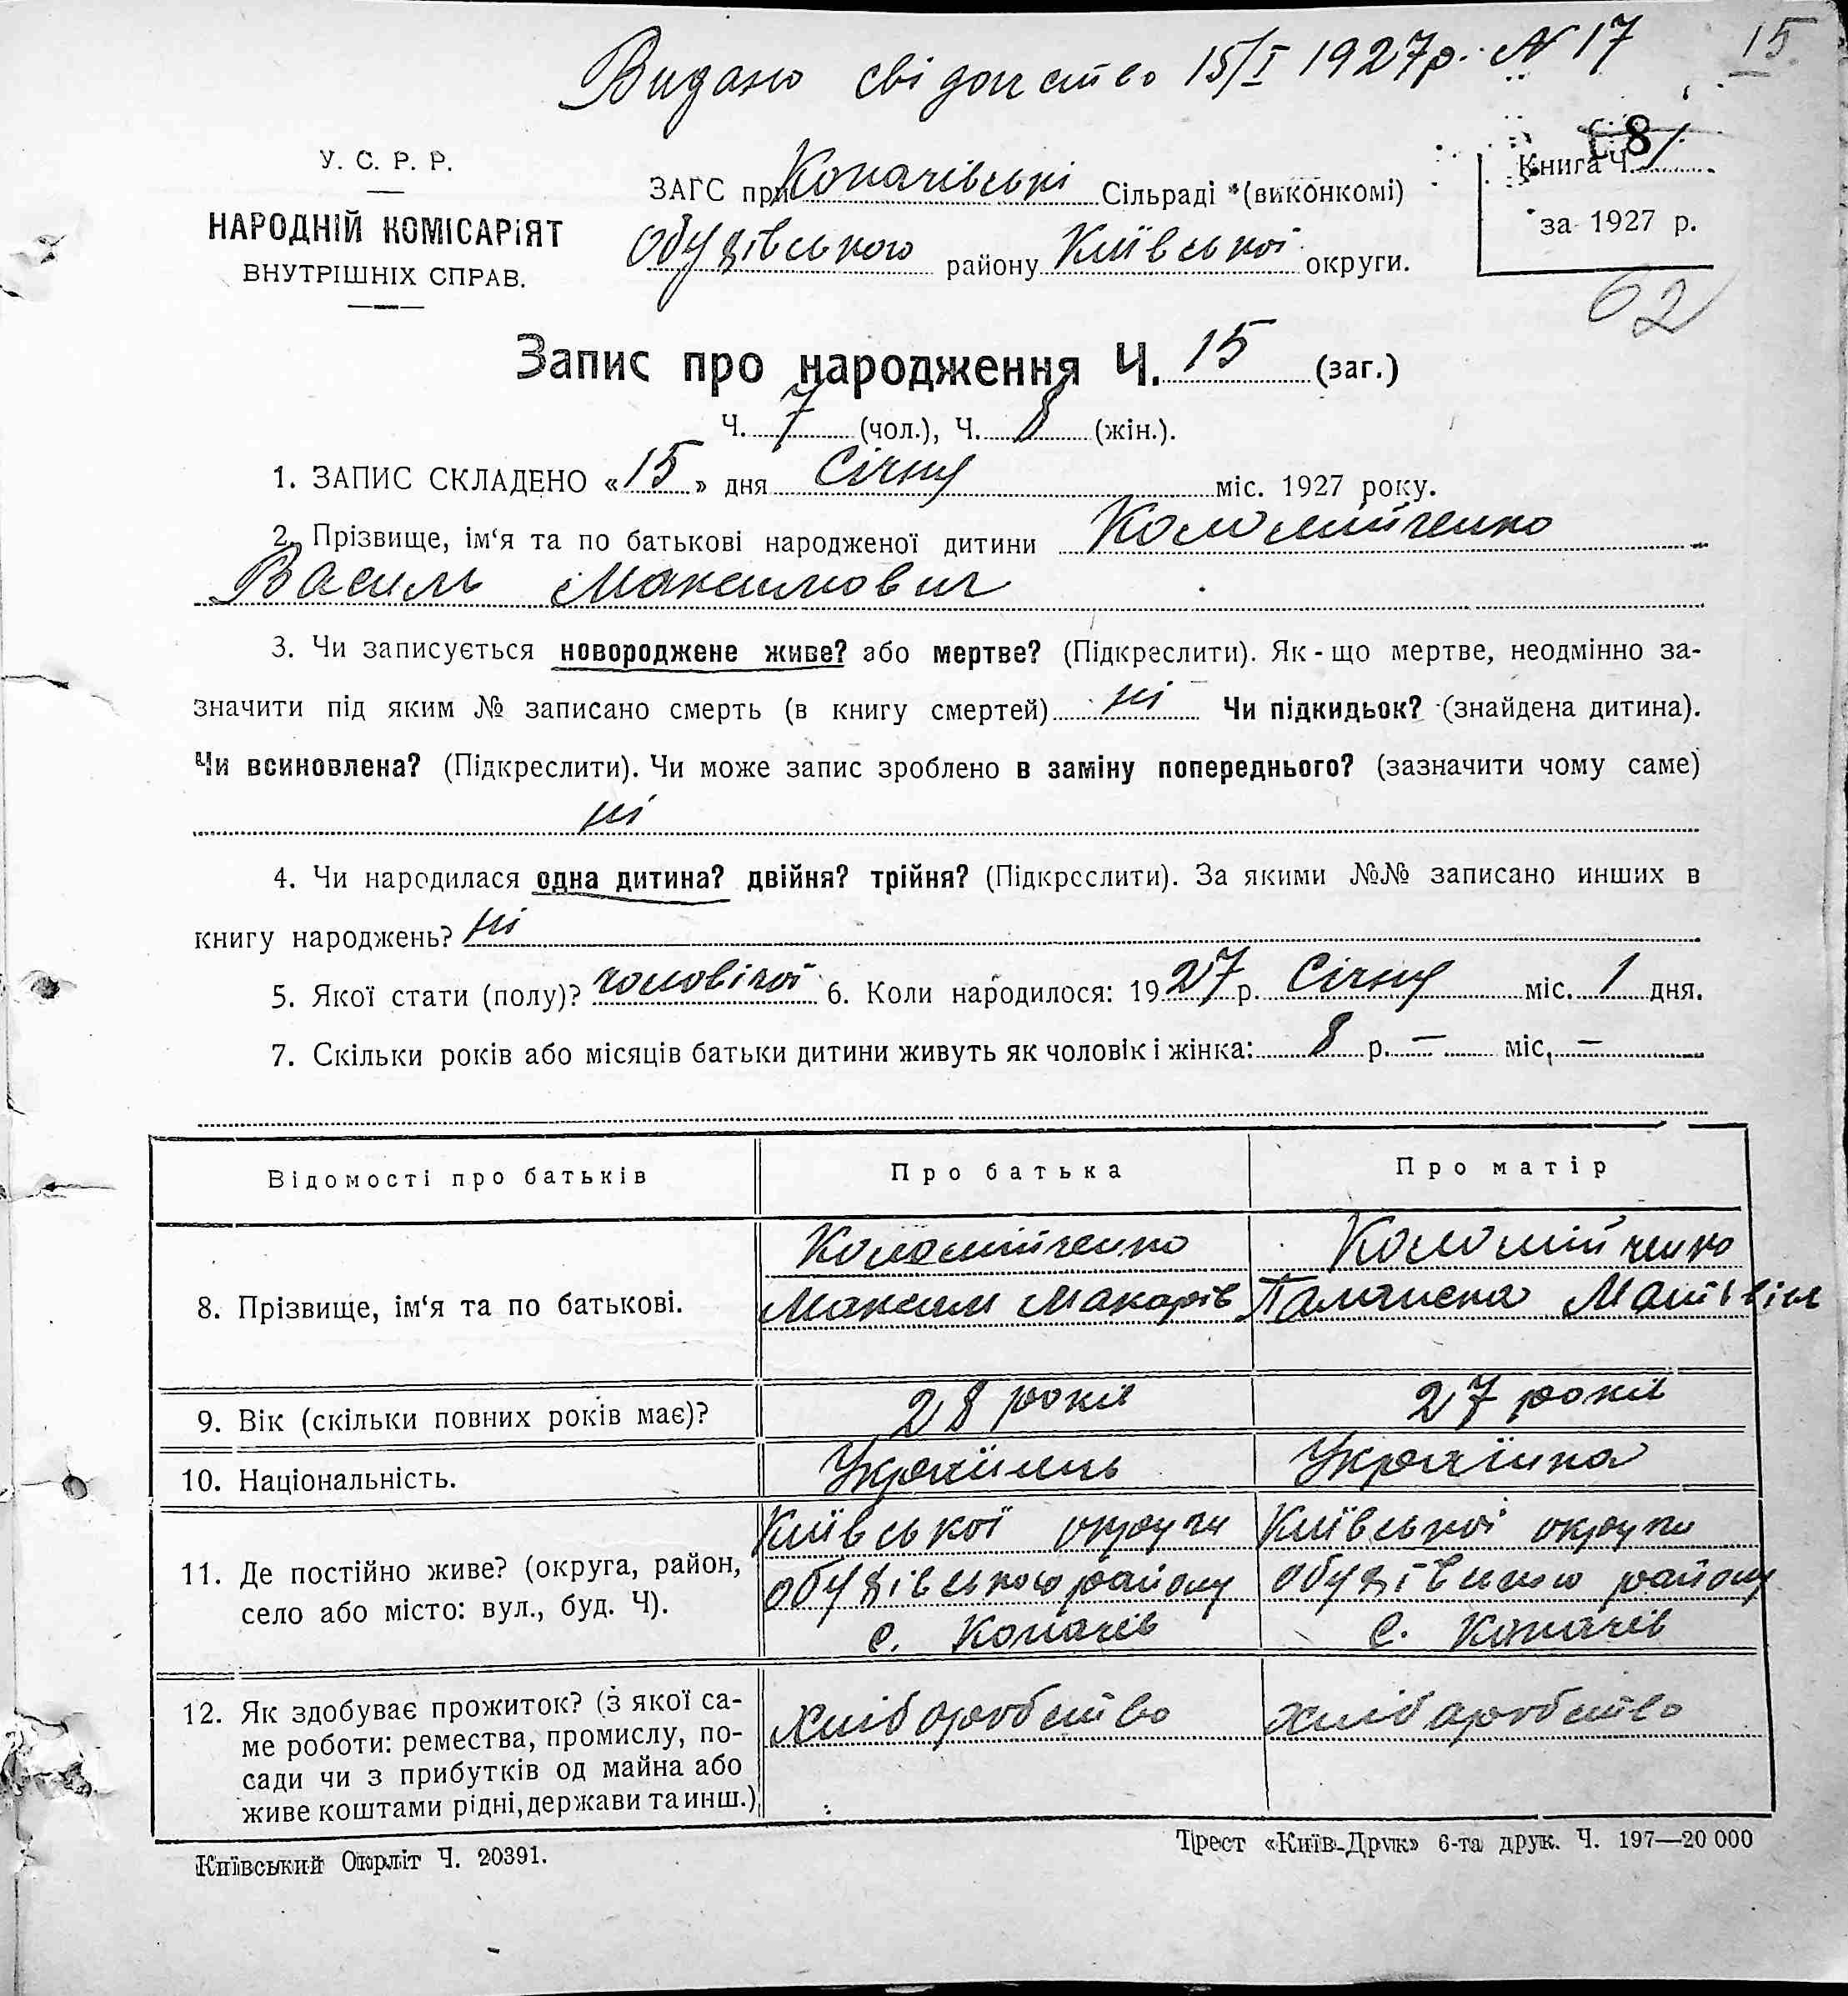 Видано свідоцтво 15/I 1927р. N 17
15.
У. С. Р. Р.
НАРОДНІЙ КОМІСАРІЯТ
ВНУТРІШНІХ СПРАВ.
ЗАГС при Копачівські Сільраді (виконкомі)
Обухівського району Київської округи.
Книга Ч.
за 1927 р.
62
Запис про народження Ч. 15 (заг.)
Ч. 7 (чол.), Ч. 8 (жін.).
1. ЗАПИС СКЛАДЕНО «15» дня Січня міс. 1927 року.
2. Прізвище, ім‘я та по батькові народженої дитини Коломийченко
Василь Максимович
3. Чи записується новороджене живе? або мертве? (Підкреслити). Як-що мертве, неодмінно за-
значити під яким № записано смерть (в книгу смертей) ні Чи підкидьок? (знайдена дитина).
Чи всиновлена? (Підкреслити). Чи може запис зроблено в заміну попереднього? (зазначити чому саме)
ні
4. Чи народилася одна дитина? двійня? трійня? (Підкреслити). За якими №№ записано инших в
книгу народжень? ні
5. Якої стати (полу)? чоловічої 6. Коли народилося: 1927 р. Січня міс. 1 дня.
7. Скільки років або місяців батьки дитини живуть як чоловік і жінка: 8 р. — міс. —
Відомості про батьків Про батька Про матір
8. Прізвище, ім‘я та по батькові.
Коломійченко
Максим Макарів
Коломійченко
Матвівн
9. Вік (скільки повних років має)? 28 років 27 років
10. Національність. Українець Українка
11. Де постійно живе? (округа, район,
село або місто: вул., буд. Ч).
Київської округи
Обухівського району
с. Копачів
Київської округи
Обухівського району
с. Копачів
12. Як здобуває прожиток? (з якої са-
ме роботи: ремества, промислу, по-
сади чи з прибутків од майна або
живе коштами рідні, держави та инш.)
хліборобство
хліборобство
Київський Окрліт Ч. 20391.
Трест «Київ-Друк» 6-та друк. Ч. 197—20 000